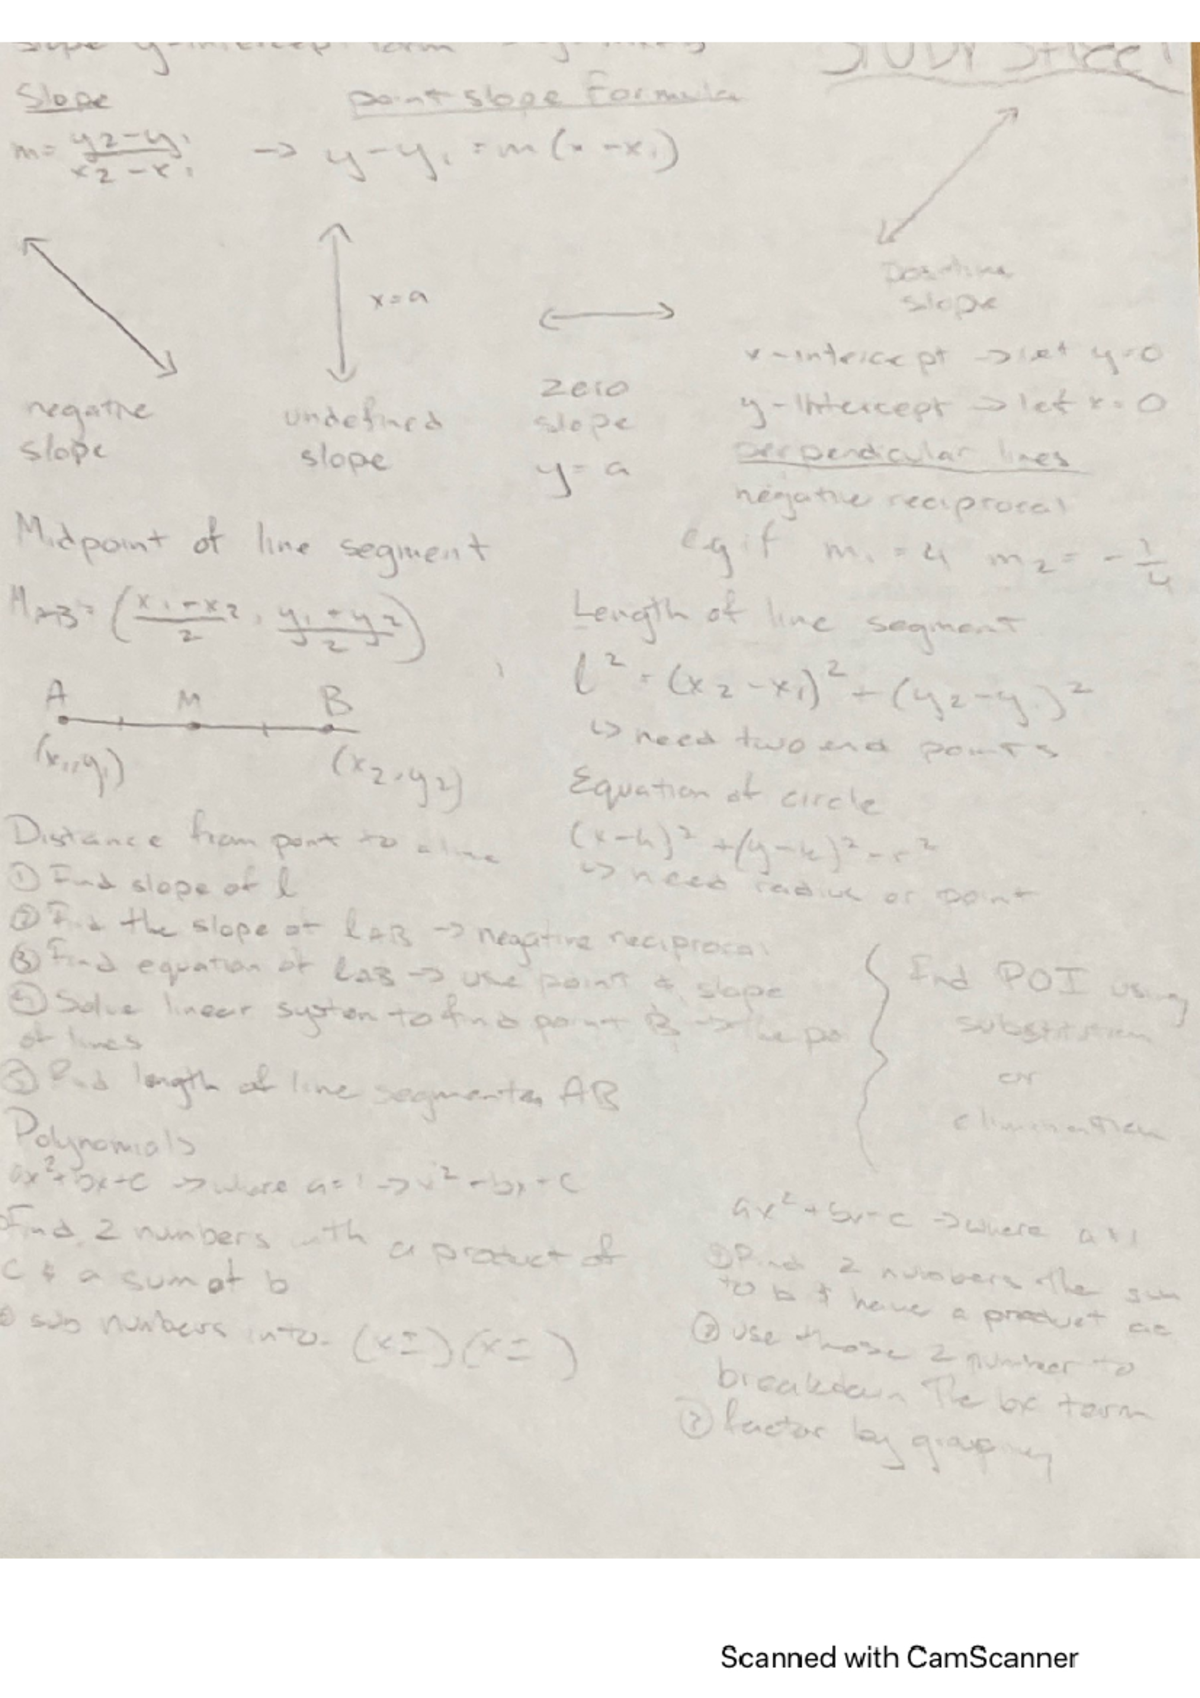 Slope y-intercept form
STUDY SHEET
Slope
point slope Formula
m = y2-y1/x2-x1 -> y-y1 = m(x-x1)
x=a
positive
slope
negative
slope
undefined
slope
zero
slope
y=a
x-intercept -> let y=0
y-intercept -> let x=0
perpendicular lines
negative reciprocal
eg if m1=4 m2=-1/4
Midpoint of line segment
MAB = (x1+x2/2, y1+y2/2)
A M B
(x1,y1) (x2,y2)
Length of line segment
l² = (x2-x1)²+(y2-y1)²
↳ need two end points
Equation of circle
(x-h)²+(y-k)²=r²
↳ need radius or point
Distance from point to a line
① Find slope of l
② Find the slope of lAB -> negative reciprocal
③ Find equation of lAB -> use point & slope
④ Solve linear system to find point B -> the po
of lines
⑤ Find length of line segment AB
{ Find POI using
substitution
or
elimination
Polynomials
ax²+bx+c -> where a=1 -> x²+bx+c
Find 2 numbers with a product of
c & a sum of b
② sub numbers into (x±)(x± )
ax²+bx+c -> where a≠1
① Find 2 numbers the sum
to b & have a product ac
② use those 2 number to
breakdown the bx term
③ factor by grouping
Scanned with CamScanner